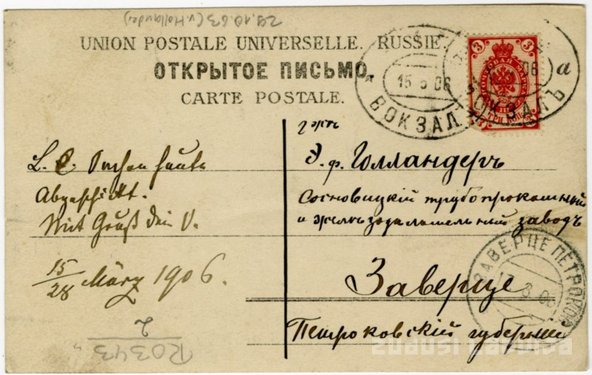 29.10.63 (v. Hollander)
UNION POSTALE UNIVERSELLE. RUSSIE
ОТКРЫТОЕ ПИСЬМО.
CARTE POSTALE.
3
15 3 06
a
ВОКЗАЛЪ
L. E. Sachen heute
Abgeschickt.
Mit Gruß Dein V.
15/28 März 1906.
Э. Ф. Голландеръ
Сосновицкій трубопрокатный
и желѣзодѣлательный заводъ
Заверце
Петроковской губерніи
ЗАВЕРЦЕ ПЕТРОКОВ
17 3 06
R0343
2